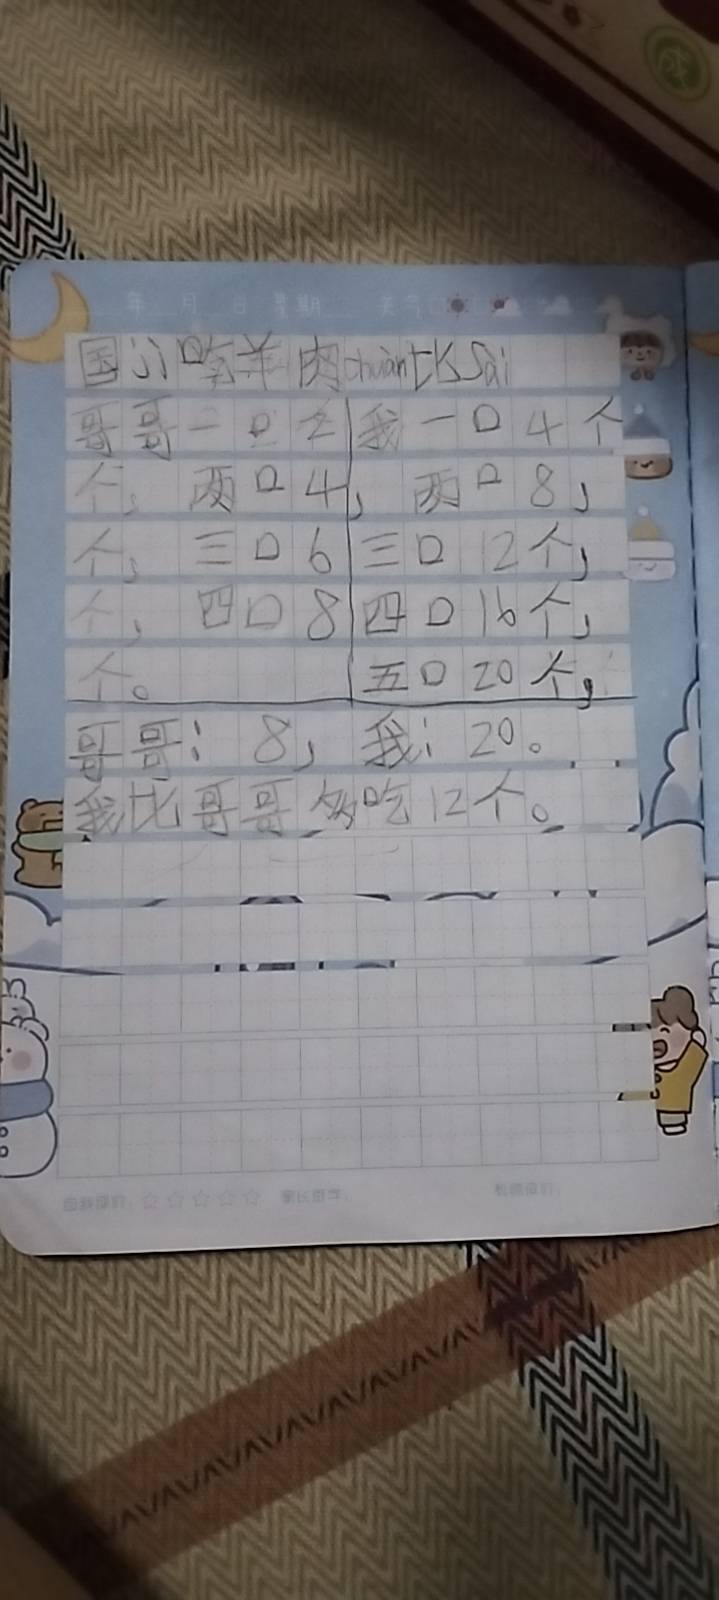 年 月 日 星期 天气
国 吃羊肉chuàn比sài
哥哥一口2
个，两口4
个，三口6
个，四口8
个。
我一口4个
，两口8，
三口12个，
四口16个，
五口20个，
哥哥：8，我：20。
我比哥哥多吃12个。